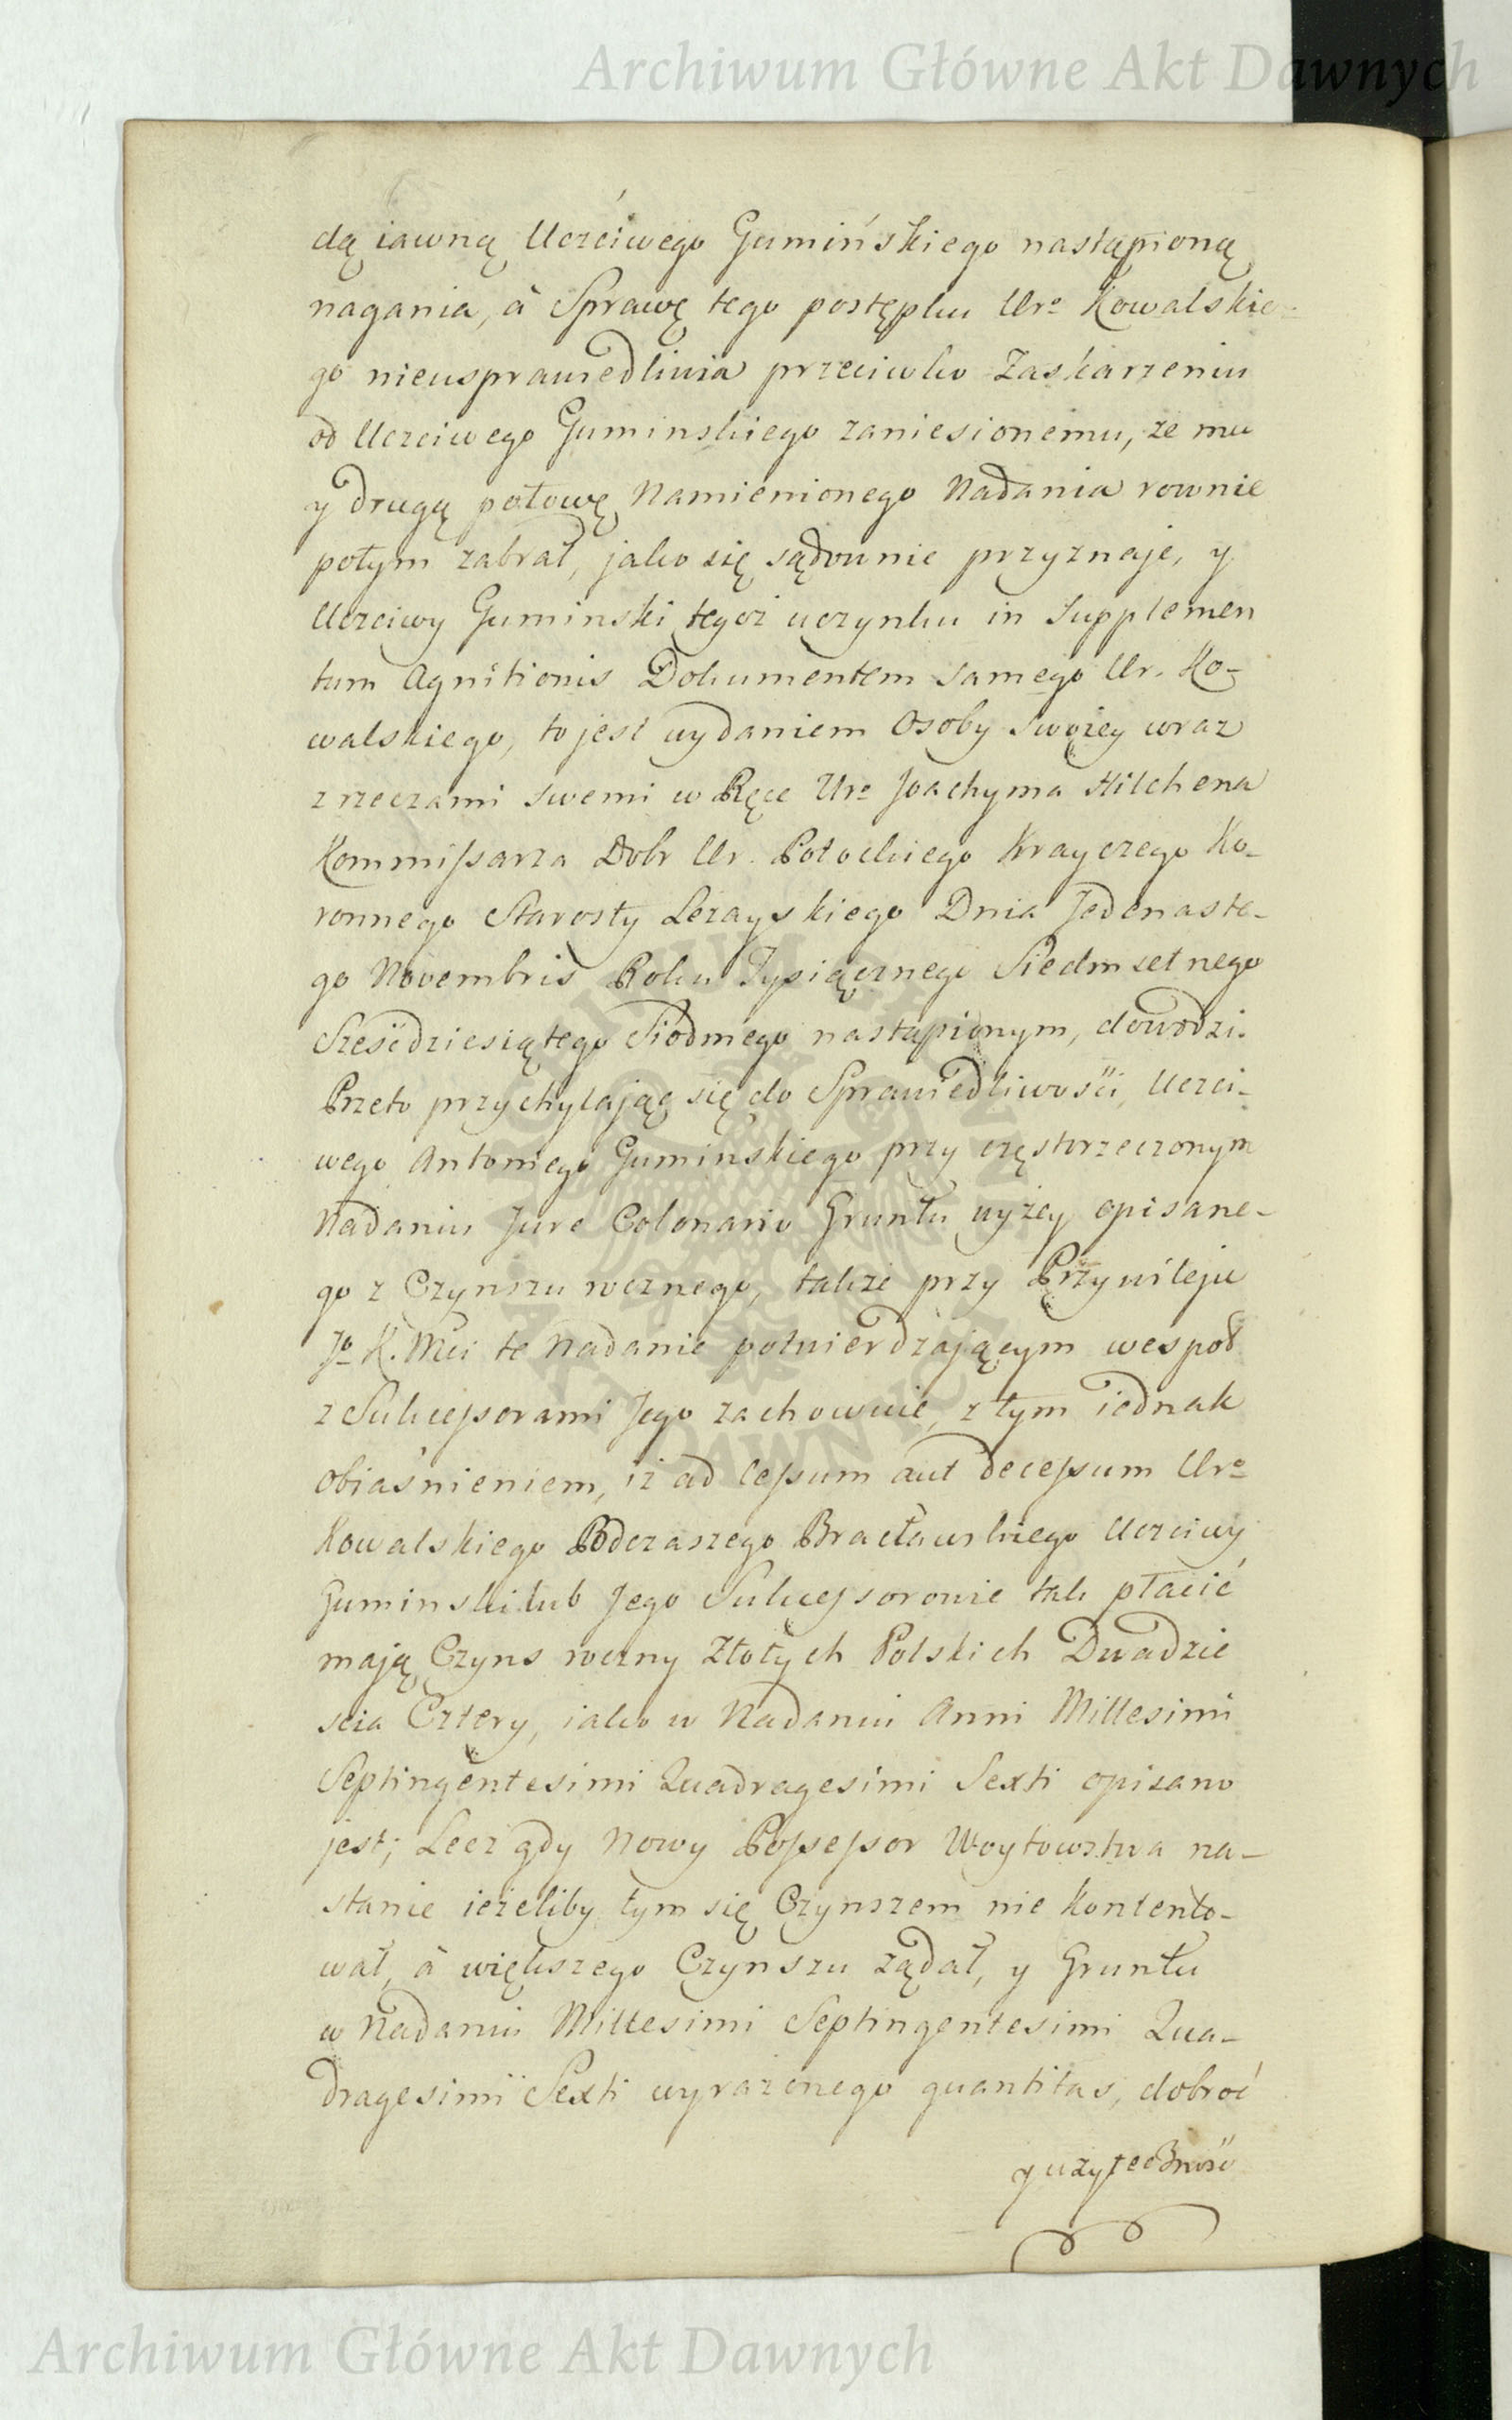 Archiwum Główne Akt Dawnych
dą iawną Uczciwego Gumińskiego nastąpioną
nagania, à Sprawę tego postępku Uro Kowalskie-
go nieusprawiedliwia przeciwko Zaskarzeniu
od Uczciwego Guminskiego zaniesionemu, że mu
y drugą połowę Namienionego Nadania rownie
potym zabrał, jako się sądownie przyznaje, y
Uczciwy Guminski tegoż uczynku in Supplemen
tum Agnitionis Dokumentem samego Ur. Ko-
walskiego, to jest wydaniem Osoby swoiey wraz
z rzeczami swemi w Ręce Uro Joachyma Hilchena
Kommissarza Dobr Ur. Potockiego Krayczego Ko-
ronnego Starosty Lezayskiego Dnia Jedenaste-
go Novembris Roku Tysiącznego Siedmsetnego
Sześćdziesiątego Siodmego nastąpionym, dowodzi.
Przeto przychylając się do Sprawiedliwości, Uczci-
wego Antoniego Gumińskiego przy częstorzeczonym
Nadaniu Jure Colonario Gruntu wyżey opisane-
go z Czynszu rocznego, także przy Przywileju
Jo K. Mci te Nadanie potwierdzającym wespoł
z Sukcessorami Jego zachowuie, z tym iednak
obiaśnieniem, iż ad cessum aut decessum Uro
Kowalskiego Podczaszego Bracławskiego Uczciwy
Guminski lub Jego Sukcessorowie tak płacić
mają Czyns roczny Złotych Polskich Dwadzie
scia Cztery, iako w Nadaniu Anni Millesimi
Septingentesimi Quadragesimi Sexti opisano
jest; Lecz gdy Nowy Possessor Woytowstwa na-
stanie ieżeliby tym się Czynszem nie Kontento-
wał, à większego Czynszu żądał, y Gruntu
w Nadaniu Millesimi Septingentesimi Qua-
dragesimi Sexti wyrażonego quantitas, dobroć
y użyteczność
Archiwum Główne Akt Dawnych